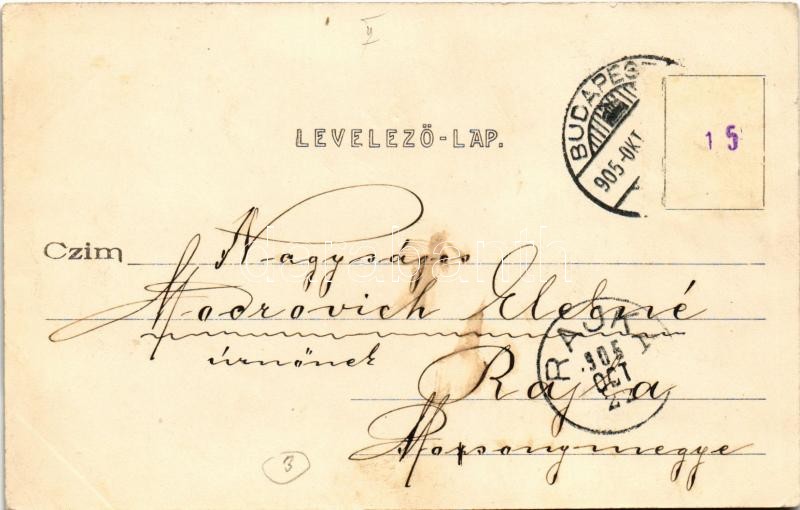 LEVELEZŐ-LAP.
BUDAPEST
905-OKT
15
Czim
Nagyságos
Modrovich Elekné
úrnőnek
Rajka
Mosonymegye
RAJKA
905
OCT
3
darabanth